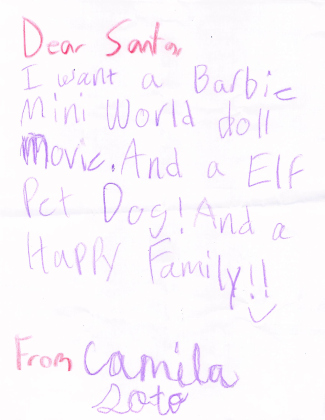 Dear Santa,
I want a Barbie
Mini World doll
Movie. And a Elf
Pet Dog! And a
Happy Family!!
From Camila
Soto